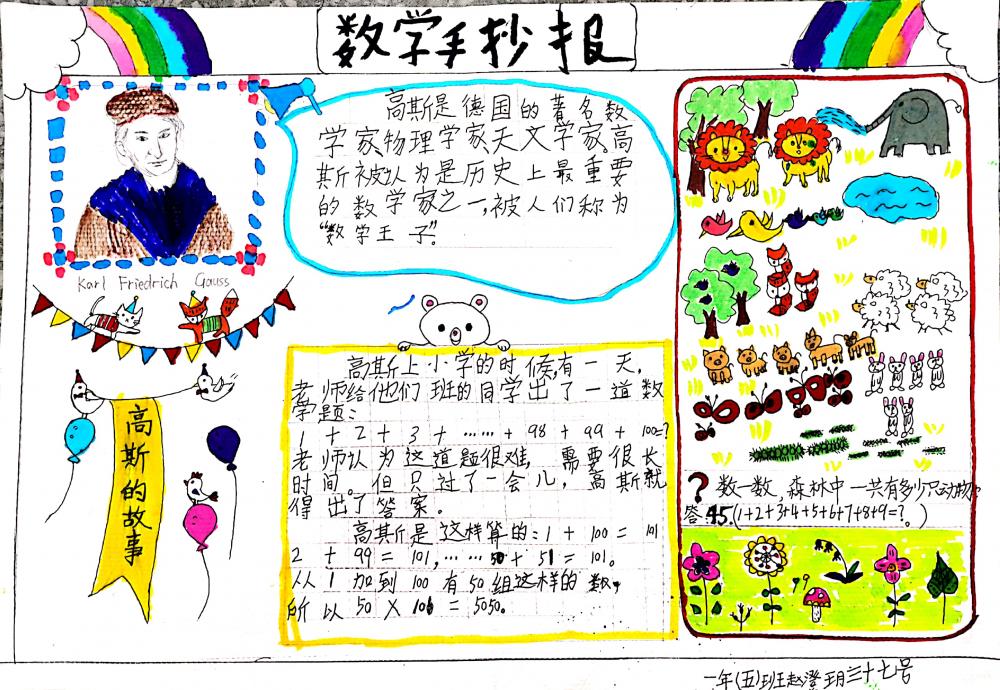 数学手抄报
高斯是德国的著名数
学家物理学家天文学家。高
斯被认为是历史上最重要
的数学家之一,被人们称为
“数学王子”。
Karl Friedrich Gauss
高斯的故事
高斯上小学的时候,有一天,
老师给他们班的同学出了一道数
学题:
1+2+3+……+98+99+100=?
老师认为这道题很难,需要很长
时间。但只过了一会儿,高斯就
得出了答案。
高斯是这样算的:1+100=101
2+99=101,……50+51=101。
从1加到100有50组这样的数,
所以50X101=5050。
? 数一数,森林中一共有多少只动物
答45.(1+2+3+4+5+6+7+8+9=?。)
一年(五)班赵澄玥三十七号